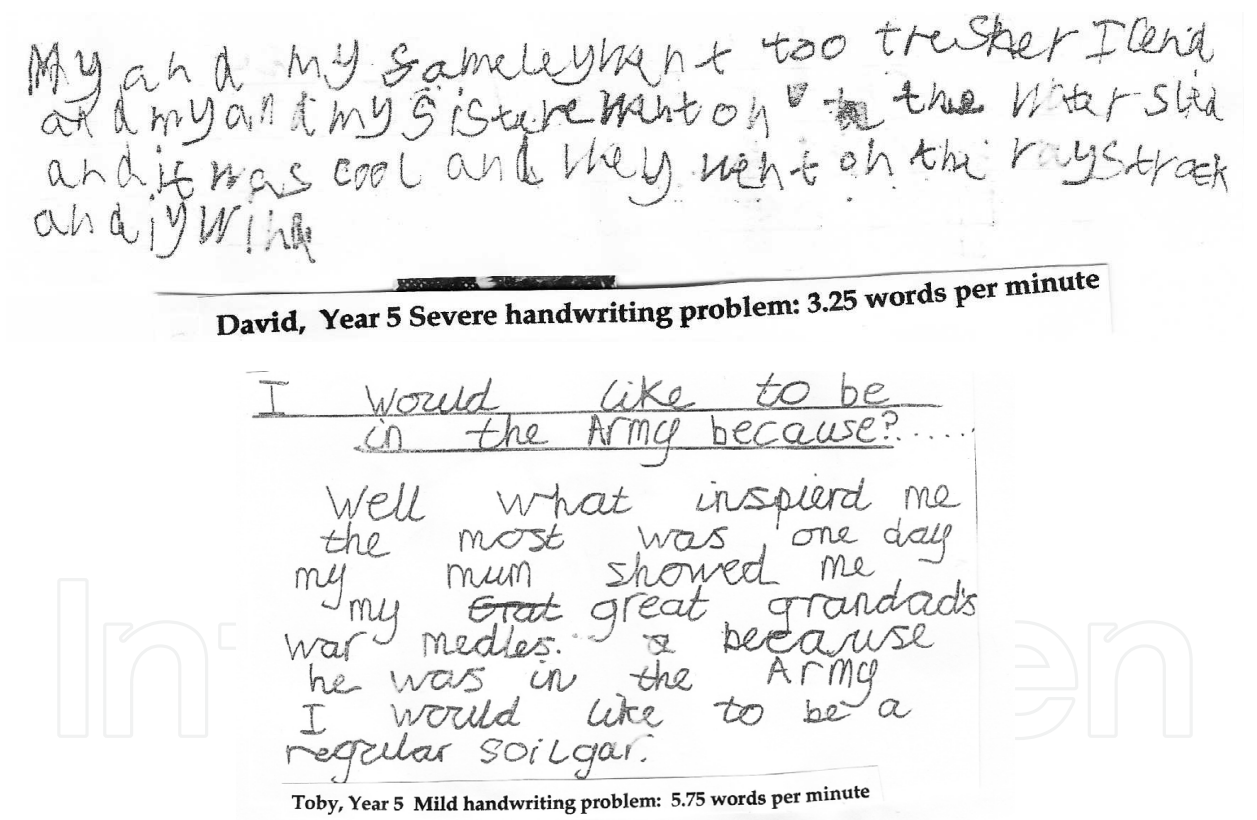 My and my fameley went too tresher Ilend
and my and my sistere went on the water slid
and it was cool and they went on the raystrack
and iy wind
David, Year 5 Severe handwriting problem: 3.25 words per minute
I would like to be
in the Army because?......
Well what inspierd me
the most was one day
my mum showed me
my great grandad's
war medles. because
he was in the Army
I would like to be a
regular soilgar.
Toby, Year 5 Mild handwriting problem: 5.75 words per minute